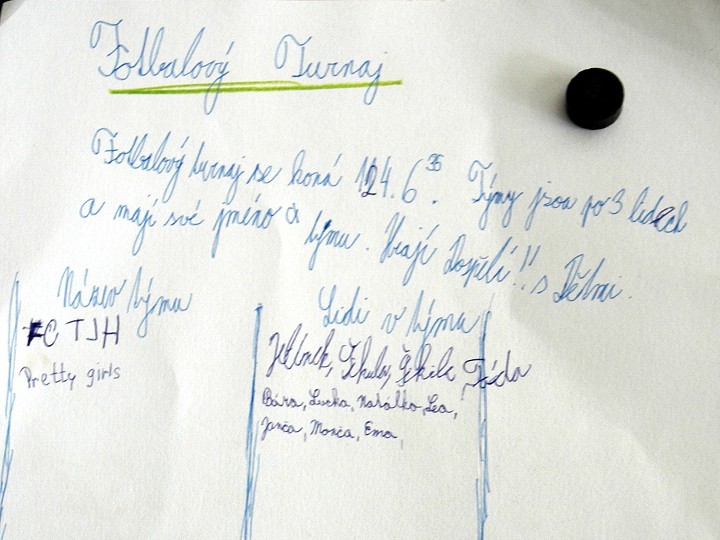 Fotbalový Turnaj
Fotbalový turnaj se koná 124.6. Týmy jsou po 3 lidech
a mají své jméno a týmu. Hrají Dospělí!! s Dětmi.
Název týmu Lidi v týmu
FC TJH Jelínek, Táda
Pretty girls Bára, Lucka, Natálko, Lea,
Janča, Monča, Ema,